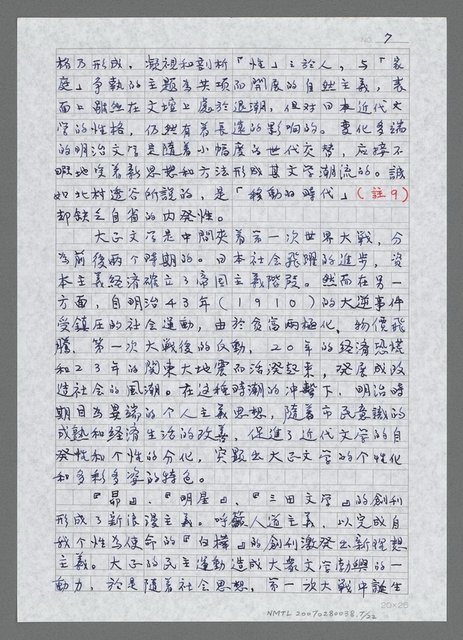 7
格乃形成，凝視和剖析『性』之於人，与『家
庭』争執的主題為共項而開展的自然主義，表
面上雖然在文壇上處於退潮，但对日本近代文
学的性格，仍然有着長遠的影响的。變化多端
的明治文学是隨着小幅度的世代交替，應接不
暇地突着新思想和方法形成其文学潮流的。誠
如北村透谷所說的，是『移動的時代』（註9）
却缺乏自省的内發性。
大正文学是中間夾着第一次世界大戰，分
為前後兩个時期的。日本社会飛躍的進步，資
本主義経済確立了帝国主義階段。然而在另一
方面，自明治43年（1910）的大逆事件
受鎮压的社会運動，由於貧富兩極化，物價飛
騰，第一次大戰後的反動，20年的経済恐慌
和23年的関東大地震而治发起來，发展成改
造社会的風潮。在这種時潮的冲擊下，明治時
期目為異端的个人主義思想，隨着市民意識的
成熟和経済生活的改善，促進了近代文学的自
发性和个性的分化，突顯出大正文学的个性化
和多彩多姿的特色。
『昴』、『明星』、『三田文学』的創刊
形成了新浪漫主義。呼籲人道主義，以完成自
我个性為使命的『白樺』的創刊激发出新理想
主義。大正的民主運動造成大衆文学勃興的一
動力，於是隨着社会思想，第一次大戰中誕生
20×25
NMTL 20070280038.7/22